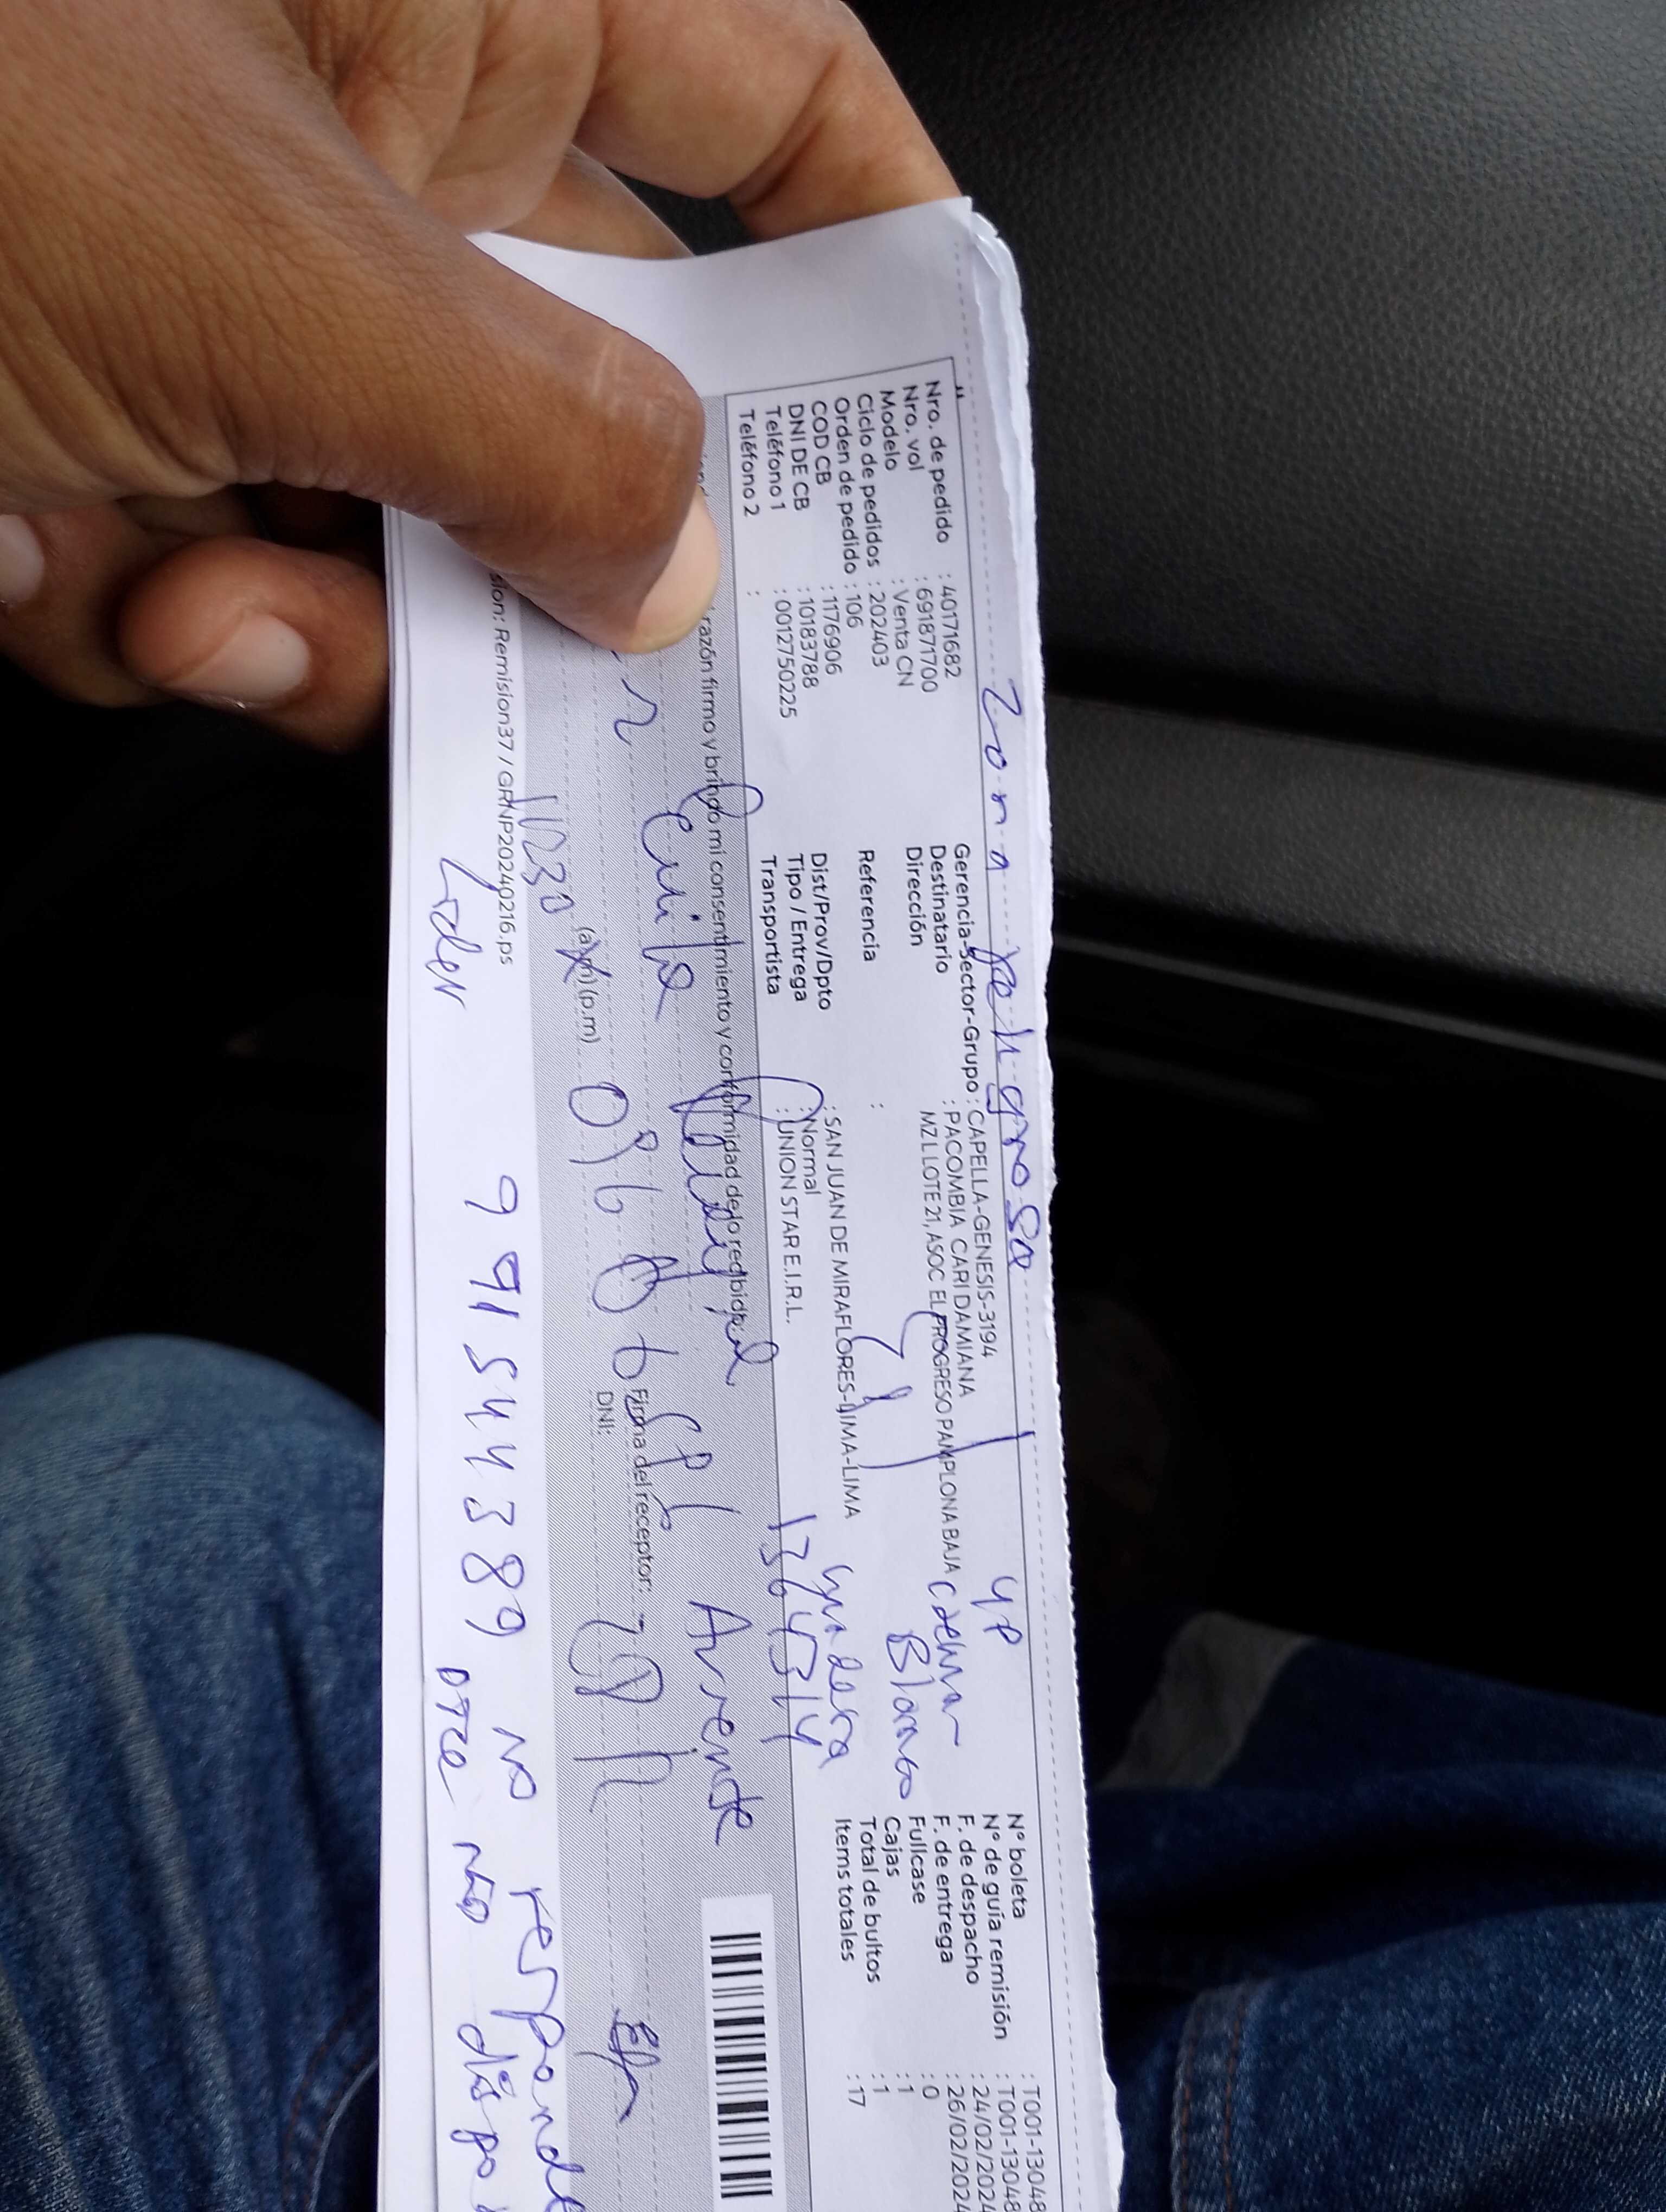 Zona peligrosa
Nro. de pedido : 40171682
Nro. vol : 691871700
Modelo : Venta CN
Ciclo de pedidos : 202403
Orden de pedido : 106
COD CB : 1176906
DNI DE CB : 10183788
Teléfono 1 : 0012750225
Teléfono 2 :
Gerencia-Sector-Grupo : CAPELLA-GENESIS-3194
Destinatario : PACOMBIA CARI DAMIANA
Dirección MZ L LOTE 21, ASOC EL PROGRESO PAMPLONA BAJA
Referencia :
Dist/Prov/Dpto : SAN JUAN DE MIRAFLORES-LIMA-LIMA
Tipo / Entrega : Normal
Transportista : UNION STAR E.I.R.L.
4P
Blanco
N° boleta : T001-13048
N° de guía remisión : T001-13048
F. de despacho : 24/02/2024
F. de entrega : 26/02/2024
Fullcase : 0
Cajas : 1
Total de bultos : 1
Items totales : 17
razón firmo y brindo mi consentimiento y conformidad de lo recibido:
(a.m) (p.m)
Firma del receptor:
DNI:
sion: Remision37 / GRNP20240216.ps
Lider 991544389 no responde